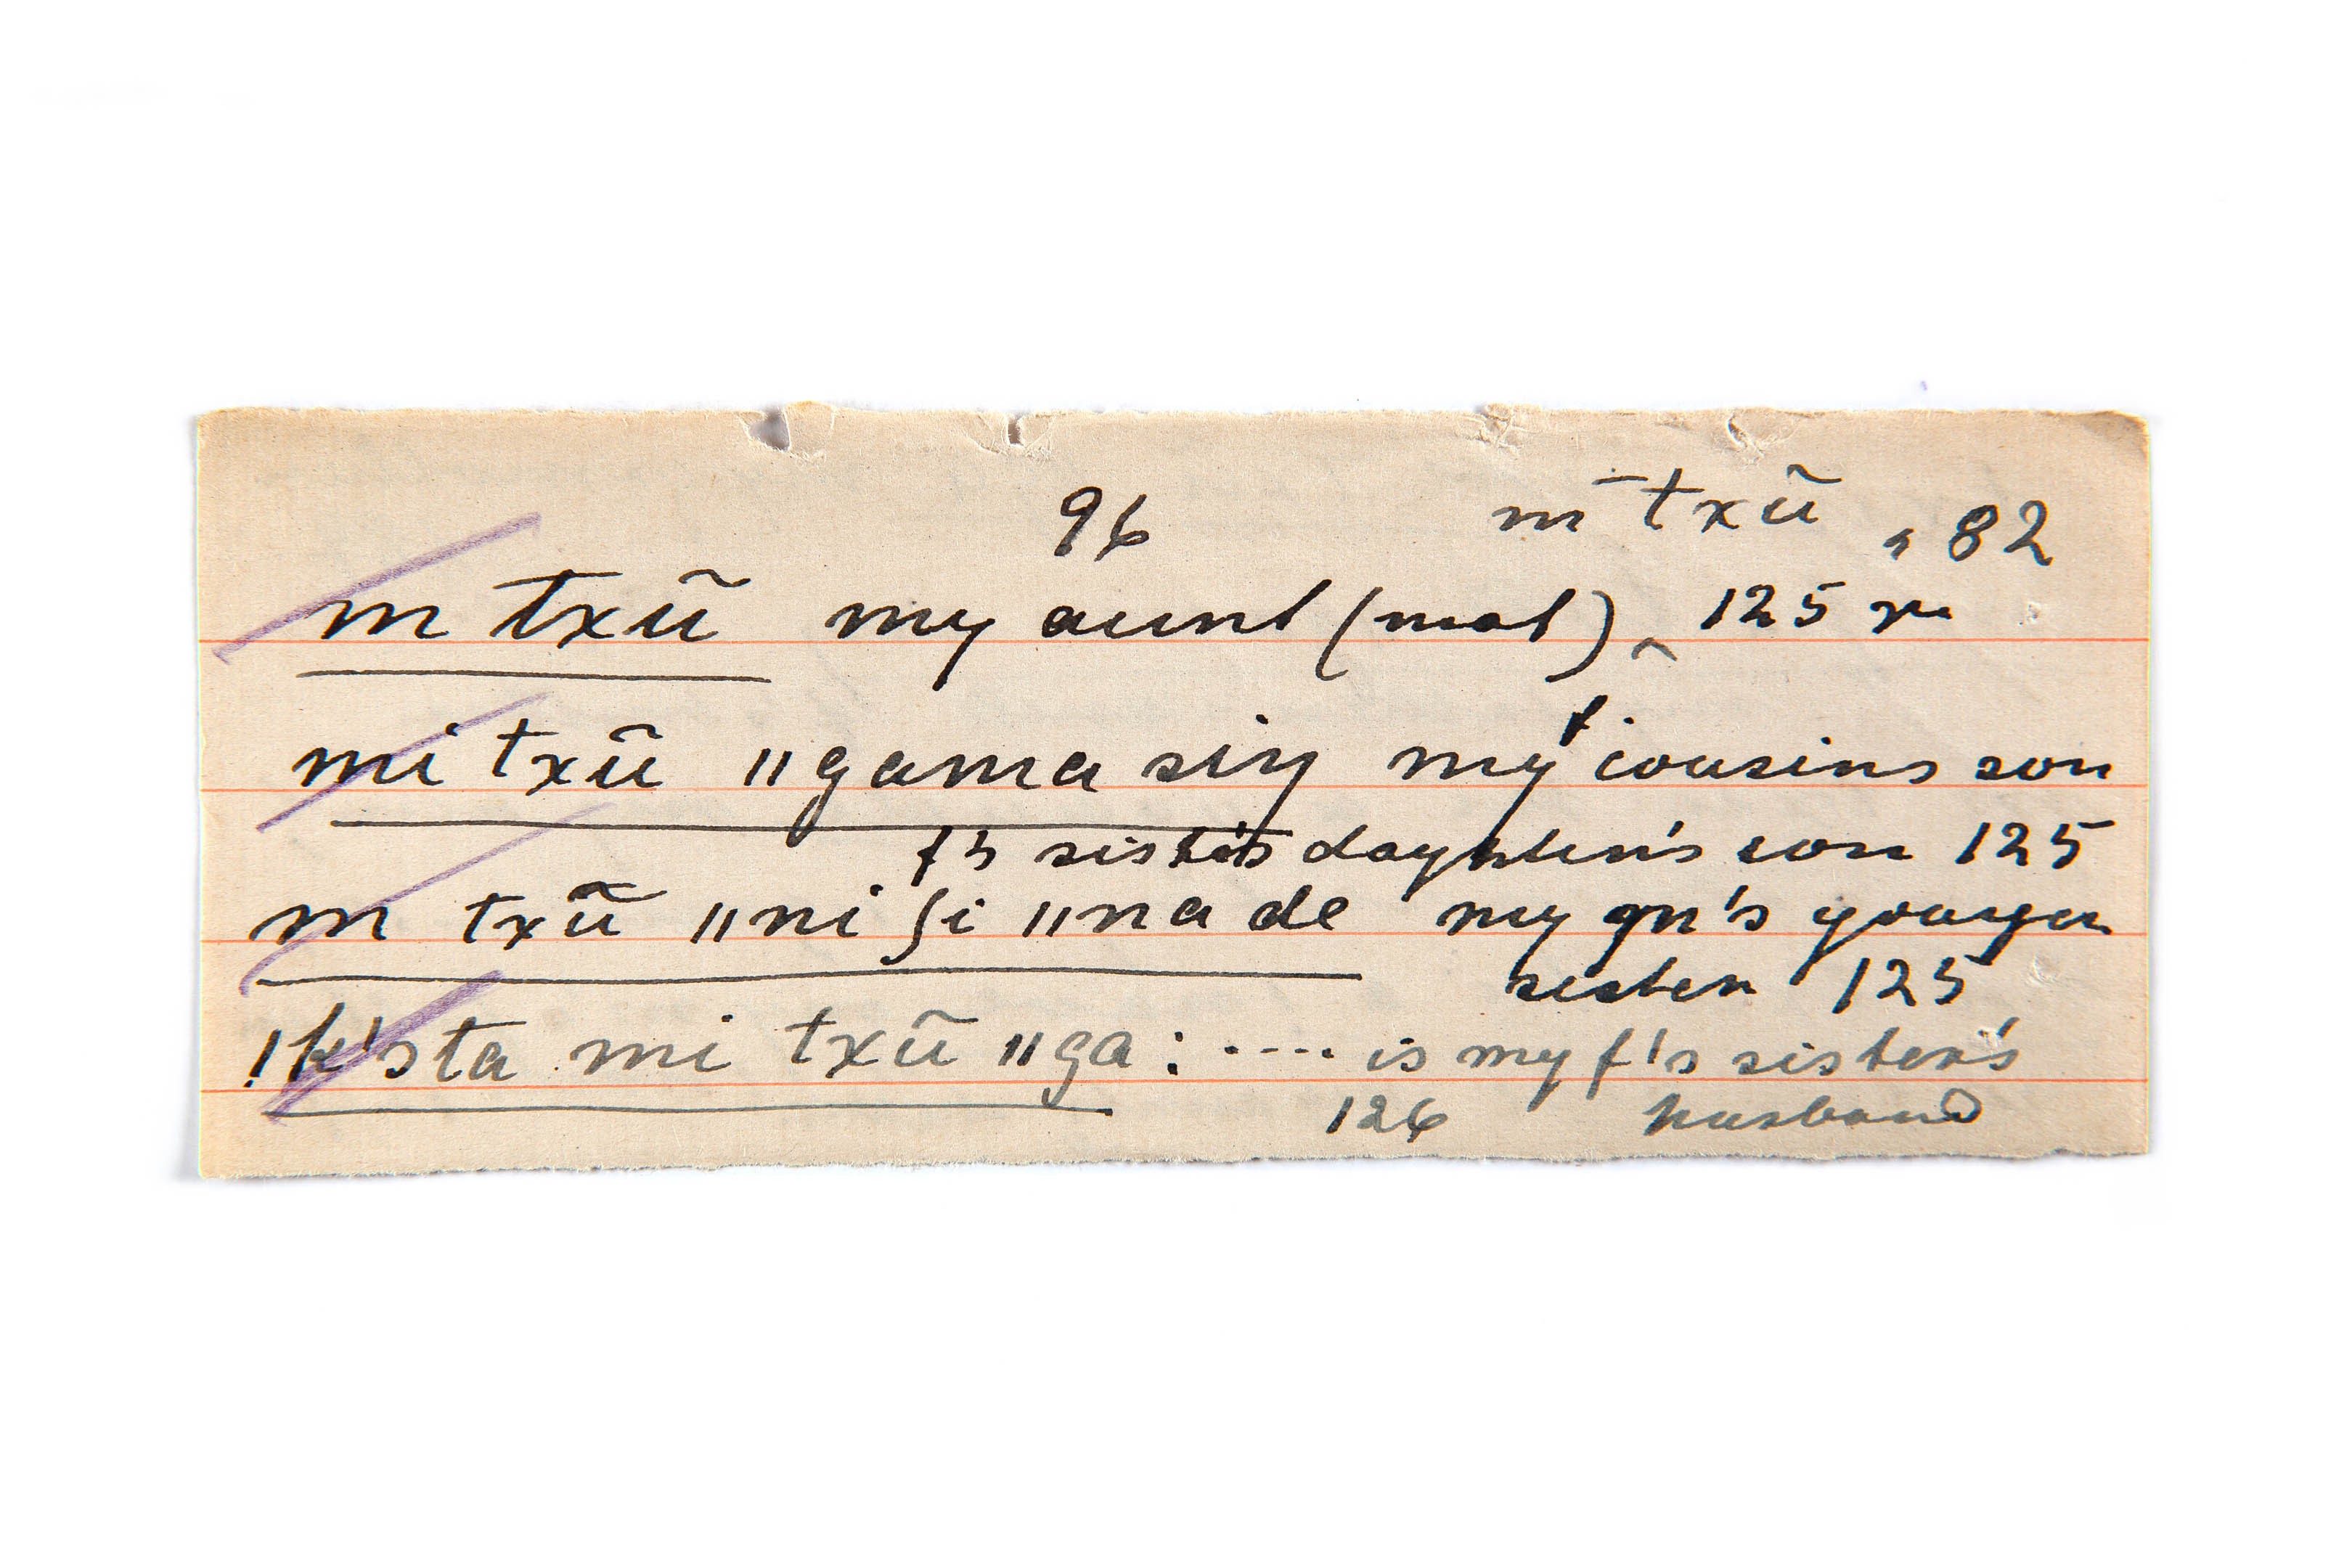 96 m̄ txũ , 82
m txũ my aunt (mat) ‸ 125
mi txũ ǁgama siŋ my f. cousins son
f's sister's daughter's son 125
m txũ ǁni ʃi ǁna de my gn's younger
sister 125
!k'sta mi txũ ǁga : .... is my f's sister's
126 husband